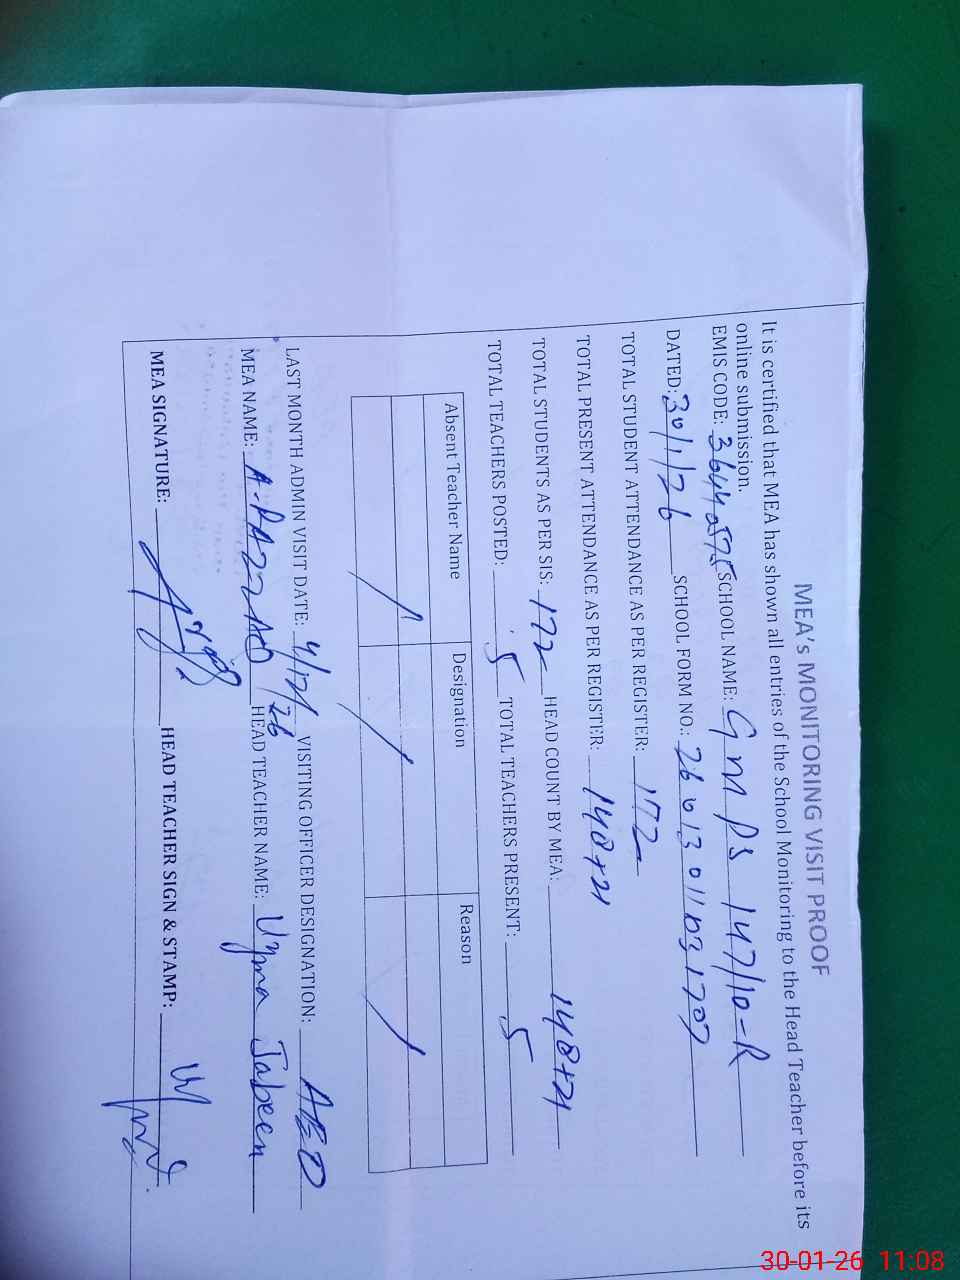 MEA's MONITORING VISIT PROOF
It is certified that MEA has shown all entries of the School Monitoring to the Head Teacher before its
online submission.
EMIS CODE: SCHOOL NAME: GMPS 147/10-R
DATED: 30/1/26 SCHOOL FORM NO.:
TOTAL STUDENT ATTENDANCE AS PER REGISTER: 172
TOTAL PRESENT ATTENDANCE AS PER REGISTER: 148+21
TOTAL STUDENTS AS PER SIS: 172 HEAD COUNT BY MEA: 148+21
TOTAL TEACHERS POSTED: 5 TOTAL TEACHERS PRESENT: 5
Absent Teacher Name Designation Reason
LAST MONTH ADMIN VISIT DATE: VISITING OFFICER DESIGNATION: AEO
MEA NAME: HEAD TEACHER NAME: Uzma Jabeen
MEA SIGNATURE: HEAD TEACHER SIGN & STAMP:
30-01-26 11:08